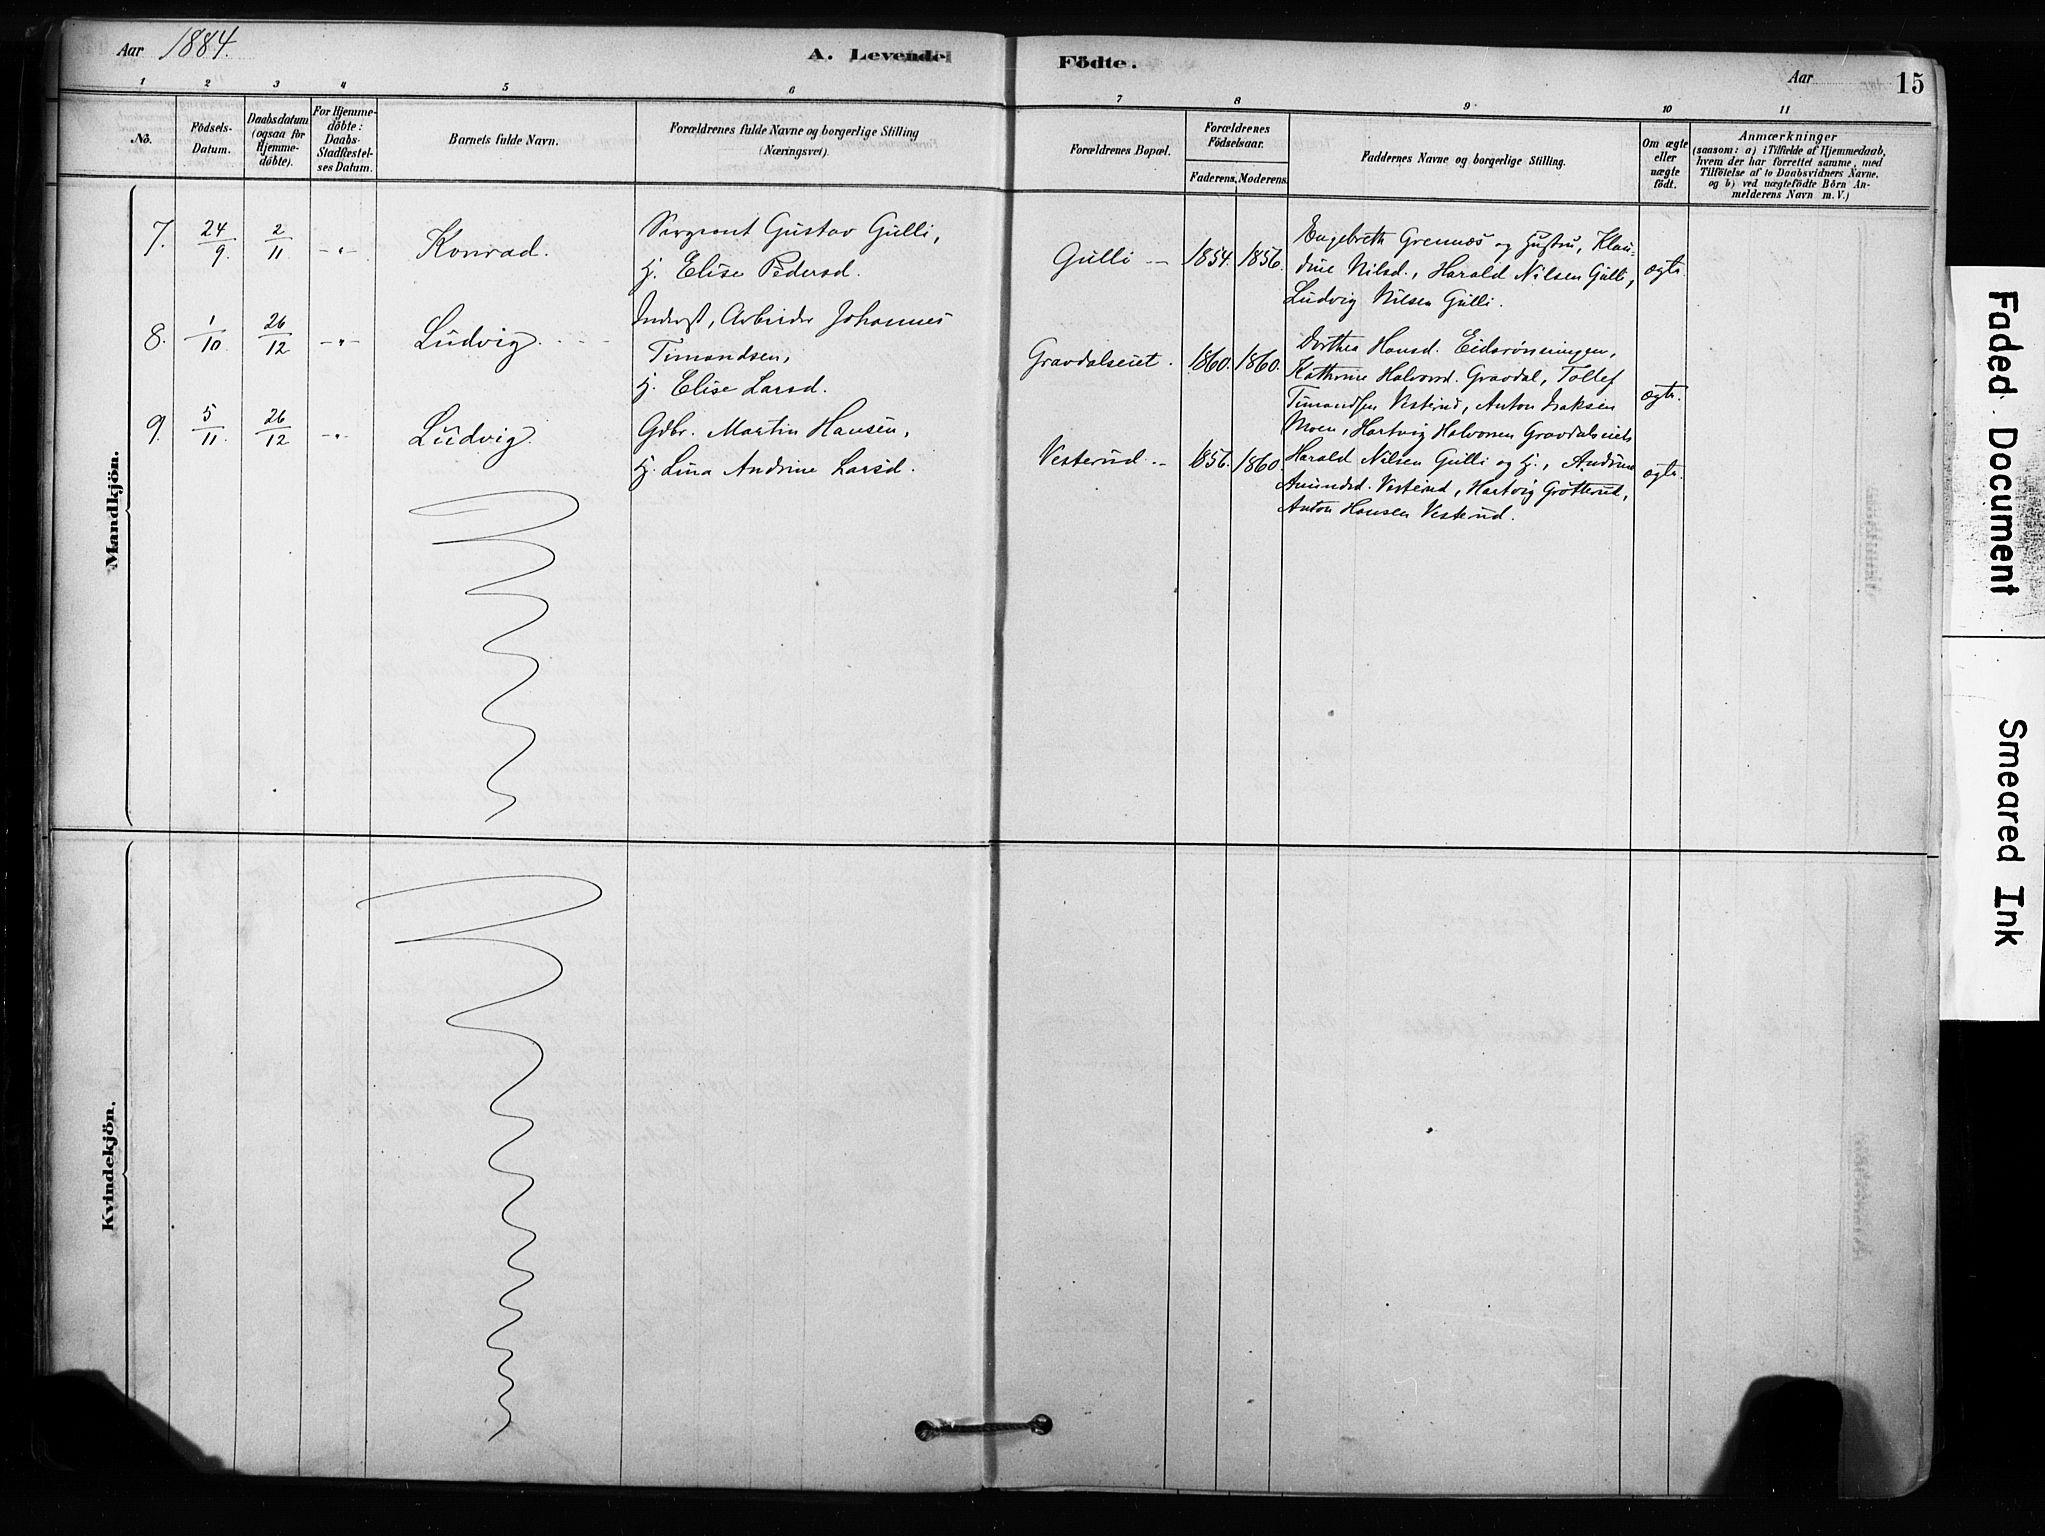 Aar 1884.
A. Levende
Födte.
Aar
15
1 2 3 4 5 6 7 8 9 10 11
No.
Födsels-
Datum.
Daabsdatum
(ogsaa for
Hjemme-
döbte).
For Hjemme-
döbte:
Daabs-
Stadfæstel-
ses Datum.
Barnets fulde Navn.
Forældrenes fulde Navne og borgerlige Stilling
(Næringsvei).
Forældrenes Bopæl.
Forældrenes
Födselsaar.
Faderens. Moderens.
Faddernes Navne og borgerlige Stilling.
Om ægte
eller
uægte
födt.
Anmærkninger
(saasom: a) i Tilfælde af Hjemmedaab,
hvem der har forrettet samme, med
Tilföielse af to Daabsvidners Navne.
og b) ved uægtefödte Börn An-
melderens Navn m. V.)
Mandkjön.
7. 24/9. 2/11 -"- Konrad.
Sergeant Gustav Gulli,
Hj. Elise Pedersd.
Gulli - 1854. 1856.
Engebreth Grennes og Hustru, Klau-
dine Nilsd., Harald Nilsen Gulli,
Ludvig Nilsen Gulli.
ægte.
8. 1/10. 26/12 -"- Ludvig.
Inderst, Arbeider Johannes
Timandsen,
Hj. Elise Larsd.
Gravdalseiet. 1860. 1860.
Dorthea Hansd. Eidsrönningen,
Kathrine Halvorsd. Gravdal, Tollef
Timandsen Vesterud, Anton Isaksen
Moen, Hartvig Halvorsen Gravdalseiet
ægte.
9. 5/11. 26/12 -"- Ludvig.
Gdbr. Martin Hansen,
Hj. Lina Andrine Larsd.
Vesterud. - 1856. 1860.
Harald Nilsen Gulli og Hj., Andrine
Amundsd. Vesterud, Hartvig Grötterud,
Anton Hansen Vesterud.
ægte.
Kvindekjön.
Faded Document
Smeared Ink